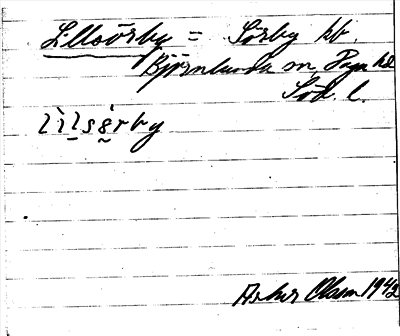 Lillsörby = Sörby hb.
Björnlunda sn, Daga hd
Söd. l.
lìlsö̀rby
Artur Olsson 1942